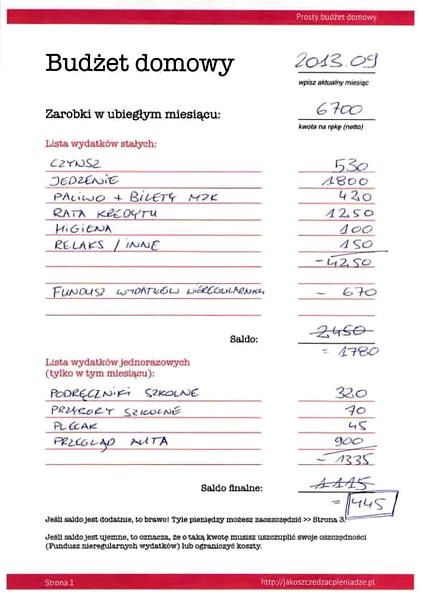 Prosty budżet domowy
Budżet domowy 2013.09
wpisz aktualny miesiąc
Zarobki w ubiegłym miesiącu: 6700
kwota na rękę (netto)
Lista wydatków stałych:
CZYNSZ 530
JEDZENIE 1800
PALIWO + BILETY MZK 420
RATA KREDYTU 1250
HIGIENA 100
RELAKS / INNE 150
- 4250
FUNDUSZ WYDATKÓW NIEREGULARNYCH - 670
Saldo: 2450
= 1780
Lista wydatków jednorazowych
(tylko w tym miesiącu):
PODRĘCZNIKI SZKOLNE 320
PRZYBORY SZKOLNE 70
PLECAK 45
PRZEGLĄD AUTA 900
- 1335
Saldo finalne: 1115
= 445
Jeśli saldo jest dodatnie, to brawo! Tyle pieniędzy możesz zaoszczędzić >> Strona 3.
Jeśli saldo jest ujemne, to oznacza, że o taką kwotę musisz uszczuplić swoje oszczędności
(Fundusz nieregularnych wydatków) lub ograniczyć koszty.
Strona 1 http://jakoszczedzacpieniadze.pl